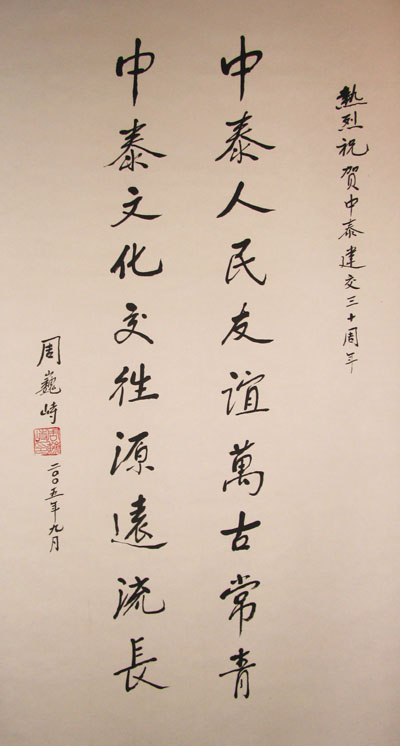 熱烈祝贺中泰建交三十周年
中泰人民友谊萬古常青
中泰文化交往源遠流長
周巍峙
二〇〇五年九月